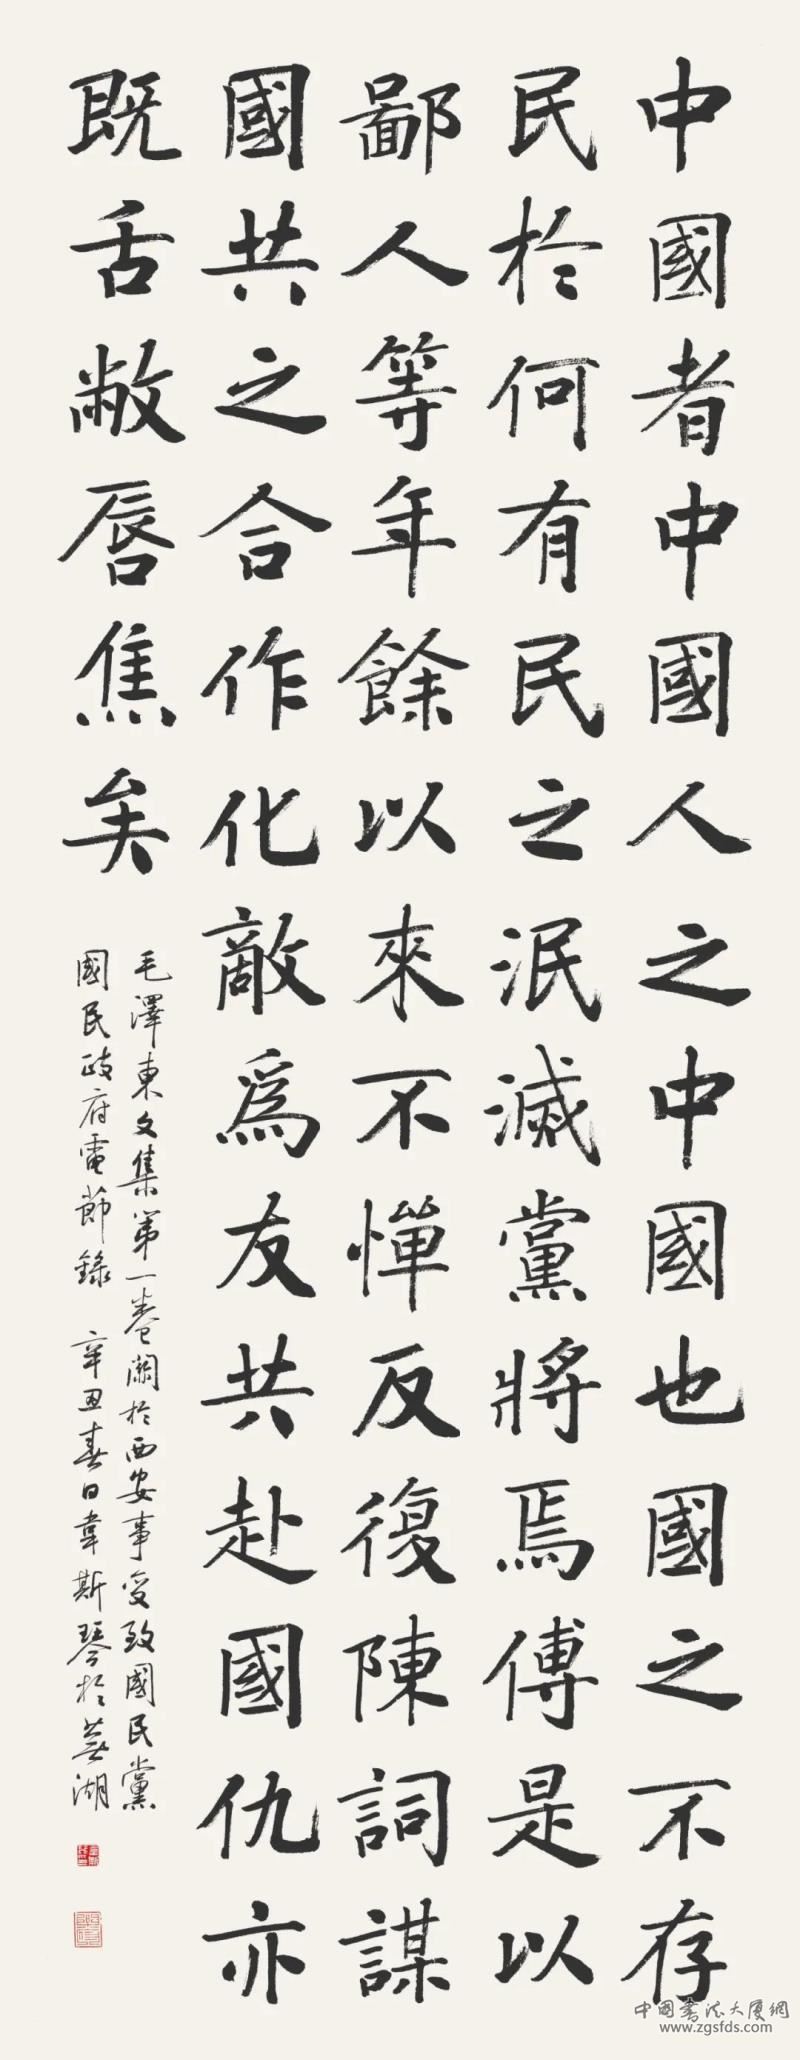 中國者中國人之中國也國之不存
民於何有民之泯滅黨將焉傅是以
鄙人等年餘以來不憚反復陳詞謀
國共之合作化敵為友共赴國仇亦
既舌敝唇焦矣
毛澤東文集第一卷關於西安事變致國民黨
國民政府電節錄 辛丑春日韋斯琴於蕪湖
中国书法大厦網
www.zgsfds.com